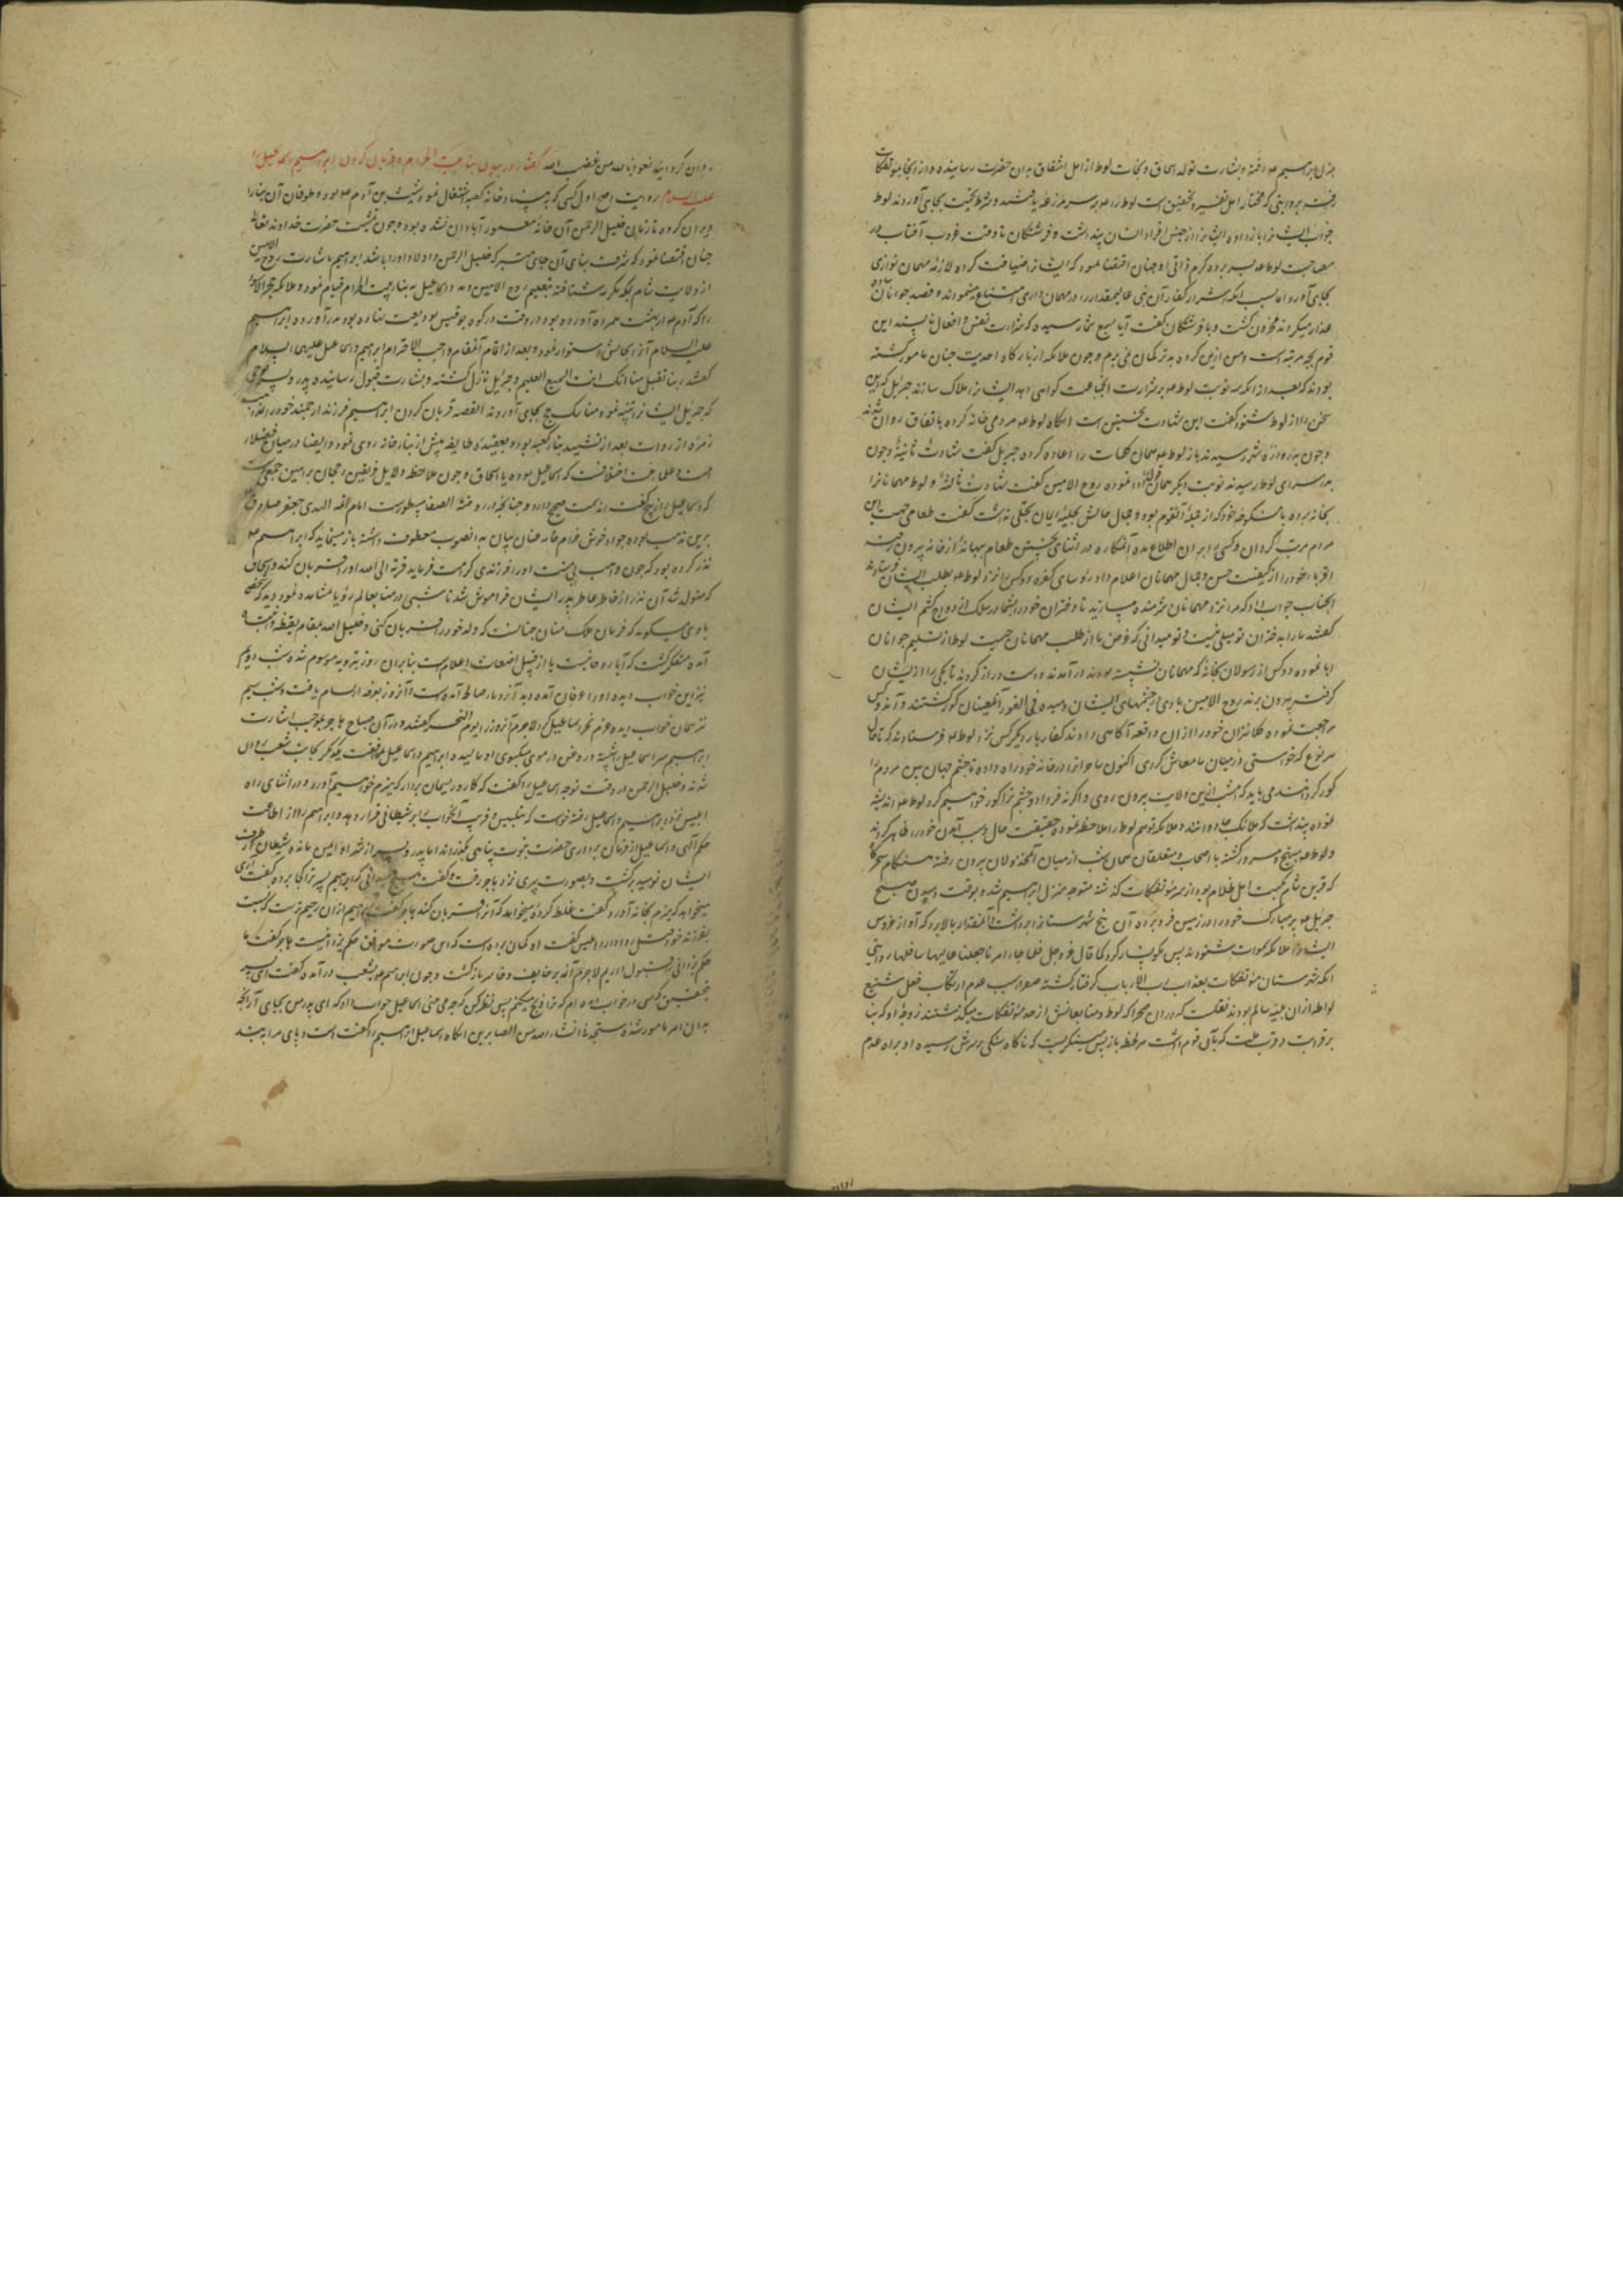 منزل ابراهیم ع م رفته و بشارت تولد اسحاق و نجات لوط از اهل اشفاق بدان حضرت رسانیده و از آنجا بمؤتفکات
رفتند بروایتی که مختار اهل تفسیر و تحقیق است لوط را ع م بر سر مزرعه یافتند و شرط تحیت بجای آوردند لوط
جواب ایشان را باز داده ایشان را از جنس افراد انسان پنداشت و فرشتگان تا وقت غروب آفتاب در
مصاحبت لوط ع م بسر برده کرم ذاتی او چنان اقتضا نمود که ایشان را ضیافت کرده لازمه مهمان نوازی
بجای آورد اما بسبب آنکه اشرار کفار آن نبی عالیمقدار را در مهمان داری امتناع مینمودند و قصد جوانان
عذار میکردند محزون گشت و با فرشتگان گفت آیا بسمع شما رسیده که شرارت نفس و افعال ناپسند این
قوم بچه مرتبه است و من ازین گروه بدتر گمان نمی برم و چون ملائکه از بارگاه احدیت چنان مامور گشته
بودند که بعد از آنکه سه نوبت لوط ع م بر شرارت آنجماعت گواهی دهد ایشان را هلاک سازند جبریل که این
سخن را از لوط شنود گفت این شهادت نخستین است آنگاه لوط ع م مردمی خانه کرده باتفاق روان شدند
و چون بدروازه شهر رسیدند باز لوط ع م همان کلمات را اعاده کرده جبریل گفت شهادت ثانیه و چون
بدر سرای لوط رسیدند نوبت دیگر همان قول ادا نموده روح الامین گفت شهادت ثالثه و لوط مهمانان را
بخانه برده با منکوحه خود که از جمله آنقوم بود و جمال حالش بحلیه ایمان تحلی نداشت گفت طعامی جهت این
مردم مرتب گردان و کسی را بر آن اطلاع مده آن مکاره در اثنای پختن طعام ببهانه از خانه بیرون رفته
اقربا خود را از کیفیت حسن و جمال مهمانان اعلام داد رؤسای کفره دو کس را نزد لوط ع م بطلب ایشان فرستادند
آنجناب جواب داد که مرا نزد مهمانان شرمنده مسازید تا دختران خود را بشما در سلک ازدواج کشم ایشان
گفتند ما را بدختران تو میلی نیست و تو میدانی که غرض ما از طلب مهمانان چیست لوط از تسلیم جوانان
ابا نموده دو کس از رسولان بخانه که مهمانان نشسته بودند در آمدند و دست دراز کردند تا یکی را از ایشان
گرفته بیرون برند روح الامین بادی در چشمهای ایشان دمیده فی الفور آن لعینان کور گشتند و آن دو کس
مراجعت نموده کلانتران خود را از آن واقعه آگاهی دادند کفار بار دیگر کس نزد لوط ع م فرستادند که تا حال
بهر نوع که خواستی در میان ما معاش کردی اکنون ساحران را در خانه خود راه داده تا چشم جهان بین مردم را
کور کردند می باید که امشب ازین ولایت بیرون روی و اگر نه فردا دو چشم ترا کور خواهیم کرد لوط ع م اندیشه
نموده پنداشت که ملائک جادوانند و ملائکه توهم لوط را ملاحظه نموده حقیقت حال و سبب آمدن خود را ظاهر کردند
و لوط ع م مبتهج و مسرور گشته با اصحاب و متعلقان همان شب از میان آن مخذولان بیرون رفته هنگام سحرگاه
که قرین شام نکبت اهل ظلام بود از سر مؤتفکات گذشته متوجه منزل ابراهیم شد و بوقت دمیدن صبح
جبریل ع م پر مبارک خود را در زمین فرو برده آن پنج شهرستان را برداشت و آنمقدار بالا برد که آواز خروس
ایشان را ملائکه سموات شنودند پس نگونسار کرد کما قال عز و جل فلما جاء امرنا جعلنا عالیها سافلها روایتی
آنکه شهرستان مؤتفکات بعذاب رب الارباب گرفتار گشته صعدا سبب عدم ارتکاب فعل شنیع
لواطه از آن بلیه سالم بودند نقلست که در آن سحر که لوط و متابعانش از حد مؤتفکات میگذشتند زوجه او که بنا
بر قرابت و قربتی که با آن قوم داشت هر لحظه باز پس مینگریست که ناگاه سنگی بر سرش رسیده او براه عدم
روان گردید نعوذ بالله من غضب الله گفتار در بیان بناء بیت الحرام و قربان کردن ابراهیم اسماعیل را
علیه السلام بروایت اصح اول کسی که به بنیاد خانه کعبه اشتغال نمود شیث بن آدم ع م بود و طوفان آن بنا را
ویران کرده تا زمان خلیل الرحمن آن خانه معمور آبادان نشده بود و چون مشیت حضرت خداوند تعالی
چنان اقتضا نمود که شرف بنای آن جای متبرک خلیل الرحمن و اولاد او را باشد ابراهیم باشارت روح الامین
از ولایت شام بمکه مکرمه شتافته بتعلیم روح الامین و مدد اسماعیل به بناء بیت الحرام قیام نمود و ملائکه حجر الاسود
را که آدم ع م از بهشت همراه آورده بود و در وقت در کوه بوقبیس بودیعت نهاده بود بدر آورده ابراهیم
علیه السلام آنرا بجایش استوار نمود و بعد از اتمام آن مقام واجب الاحترام ابراهیم و اسماعیل علیهما السلام
گفتند ربنا تقبل منا انک انت السمیع العلیم و جبریل نازل گشته و بشارت قبول رسانیده پدر و پسر
که جبریل ایشان را تنبیه نمود مناسک حج بجای آوردند القصه قربان کردن ابراهیم فرزند ارجمند خود را بمذهب
زمره از روات بعد از تشیید بناء کعبه بود و بعقیده طایفه پیش از بناء خانه روی نمود و ایضا در میان فضلاء
امت و علماء ملت اختلافست که اسماعیل بوده یا اسحاق و چون ملاحظه دلایل فریقین رجحان براهین جمعی است
که اسماعیل را ذبیح گفته اند سمت صحیح دارد و چنانچه در روضة الصفا مسطورست امام ائمه الهدی جعفر صادق
برین مذهب بوده جواد خوش خرام خامه عنان بیان بدانصوب معطوف داشته باز مینماید که ابراهیم ع م
نذر کرده بود که چون واهب بی منت او را فرزندی کرامت فرماید قربة الی الله او را قربان کند و اسحاق
که متولد شد آن نذر از خاطر عاطر پدر ایشان فراموش شد تا شبی در منا بعالم رؤیا مشاهده نمود و دید که شخصی
با وی میگوید که فرمان ملک منان چنانست که ولد خود را قربان کنی و خلیل الله بمقام یقظه و انتباه
آمده متفکر گشت که آیا رحمانیست یا از قبیل اضغاث احلام است بنابر آن روز بترویه موسوم شد شب دوم
نیز این خواب دیده او را عرفان آمده دید آنرا و ما صالحه آمده است و آنروز بعرفه ارتسام یافت و شب سیم
نیز همان خواب دیده عزم نحر اسماعیل کرد لاجرم آنروز را یوم النحر گفتند و در آن صباح هاجر بموجب اشارت
ابراهیم سر اسماعیل را شسته و روغن در موی مشکبوی او مالیده ابراهیم و اسماعیل بموافقت یکدگر بجانب شعب روان
شدند و خلیل الرحمن در وقت توجه اسماعیل را گفت که کارد و ریسمان بردار که هیزم خواهیم آورد و در اثنای راه
ابلیس نزد ابراهیم و اسماعیل رفته خواست که بتلبیس و فریب آنخواب را بر شیطانی قرار دهد و ابراهیم را از اطاعت
حکم الهی و اسماعیل را از فرمان برداری حضرت نبوت پناهی بگذراند اما پدر و پسر از شر او ایمن مانده شیطان از طرف
ایشان نومید برگشت و بصورت پیری نزد هاجر رفت و گفت هیچ میدانی که ابراهیم پسر ترا کجا برده گفت آری
میخواهد که هیزم بخانه آورد گفت غلط کرده میخواهد که آنرا قربان کند هاجر گفت ابراهیم از آن رحیم ترست که نسبت
بفرزند خود قتل روا دارد ابلیس گفت او گمان برده است که این صورت موافق حکم یزدانیست هاجر گفت ما
حکم یزدانی را قبول داریم لاجرم آن مدبر خایف و خاسر بازگشت و چون ابراهیم ع م بشعب در آمد گفت ای پسر
بتحقیق که من در خواب دیده ام که ترا ذبح میکنم پس نظر کن که چه می بینی اسماعیل جواب داد که ای پدر من بجای آر آنچه
بدان امر مامور شده ستجدنی انشاء الله من الصابرین آنگاه اسماعیل ابراهیم را گفت دست و پای مرا به بند